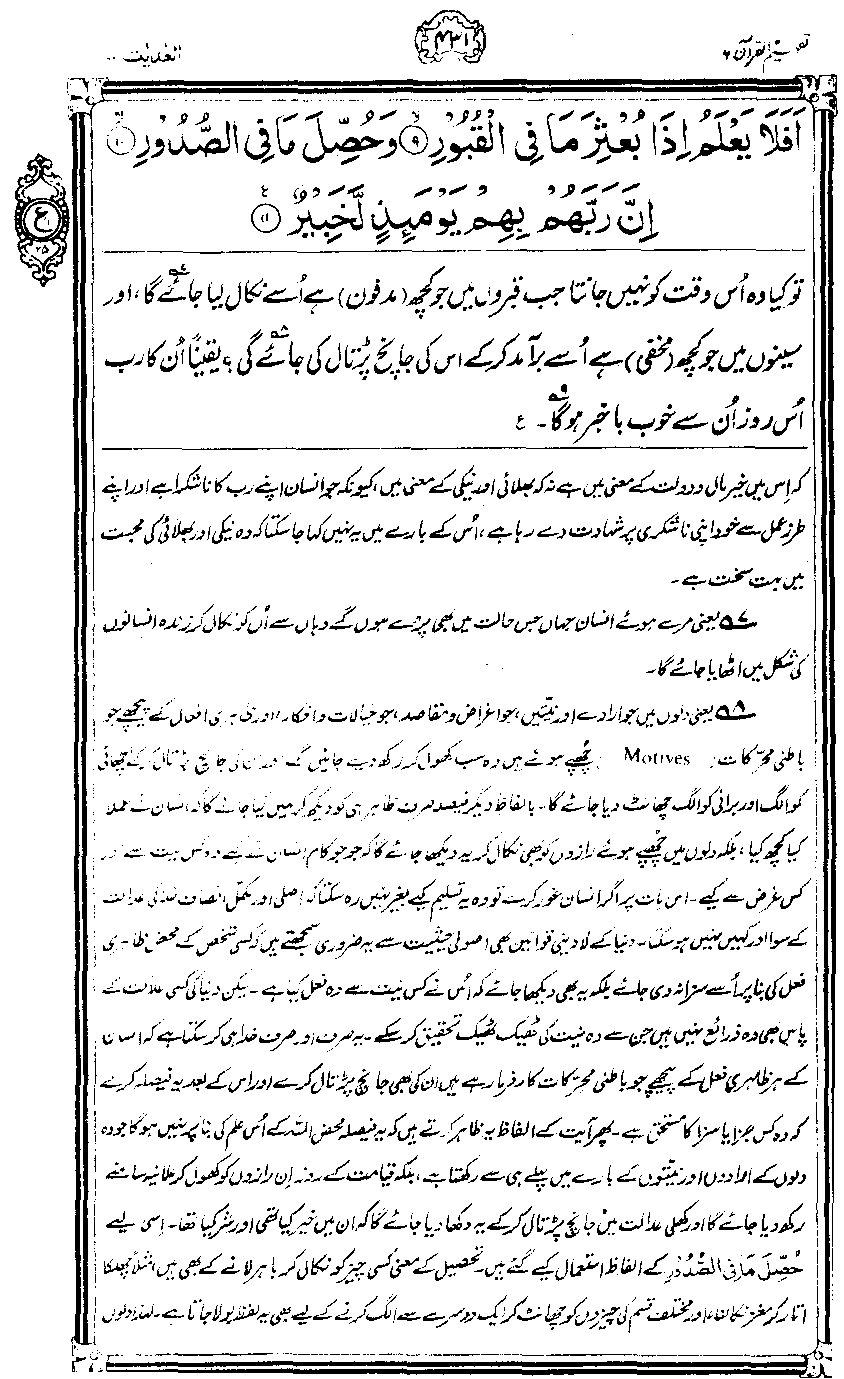 تفہیم القرآن ۶
۴۳۱
العٰدیٰت ۱۰۰
اَفَلَا يَعْلَمُ اِذَا بُعْثِرَ مَا فِی الْقُبُوْرِ ۙ﴿۹﴾ وَحُصِّلَ مَا فِی الصُّدُوْرِ ۙ﴿۱۰﴾
اِنَّ رَبَّهُمْ بِهِمْ يَوْمَئِذٍ لَّخَبِيْرٌ ﴿۱۱﴾
ع
تو کیا وہ اُس وقت کو نہیں جانتا جب قبروں میں جو کچھ (مدفون) ہے اُسے نکال لیا جائے گا،۵۷ اور
سینوں میں جو کچھ (مخفی) ہے اُسے برآمد کرکے اس کی جانچ پڑتال کی جائے گی؟۵۸ یقیناً اُن کا رب
اُس روز اُن سے خوب باخبر ہوگا۵۹۔ ع
کہ اِس میں خیر مال و دولت کے معنی میں ہے نہ کہ بھلائی اور نیکی کے معنی میں، کیونکہ جو انسان اپنے رب کا ناشکرا ہے اور اپنے
طرزِ عمل سے خود اپنی ناشکری پر شہادت دے رہا ہے، اُس کے بارے میں یہ نہیں کہا جا سکتا کہ وہ نیکی اور بھلائی کی محبت
میں بہت سخت ہے۔
۵۷ یعنی مرے ہوئے انسان جہاں جس حالت میں بھی پڑے ہوں گے وہاں سے اُن کو نکال کر زندہ انسانوں
کی شکل میں اٹھایا جائے گا۔
۵۸ یعنی دلوں میں جو ارادے اور نیتیں، جو اغراض و مقاصد، جو خیالات و افکار اور ظاہری افعال کے پیچھے جو
باطنی محرّکات (Motives) چُھپے ہوئے ہیں وہ سب کھول کر رکھ دیے جائیں گے اور ان کی جانچ پڑتال کر کے اچھائی
کو الگ اور برائی کو الگ چھانٹ دیا جائے گا۔ بالفاظ دیگر فیصلہ صرف ظاہر ہی کو دیکھ کر نہیں کیا جائے گا کہ انسان نے عملاً
کیا کچھ کیا، بلکہ دلوں میں چُھپے ہوئے رازوں کو بھی نکال کر یہ دیکھا جائے گا کہ جو جو کام انسان نے کیے وہ کس نیت سے اور
کس غرض سے کیے۔ اس بات پر اگر انسان غور کرے تو وہ یہ تسلیم کیے بغیر نہیں رہ سکتا کہ اصلی اور مکمل انصاف خدا کی عدالت
کے سوا اور کہیں نہیں ہو سکتا۔ دنیا کے لادینی قوانین بھی اصولی حیثیت سے یہ ضروری سمجھتے ہیں کہ کسی شخص کے محض ظاہری
فعل کی بنا پر اُسے سزا نہ دی جائے بلکہ یہ بھی دیکھا جائے کہ اُس نے کس نیت سے وہ فعل کیا ہے۔ لیکن دنیا کی کسی عدالت کے
پاس بھی وہ ذرائع نہیں ہیں جن سے وہ نیت کی ٹھیک ٹھیک تحقیق کر سکے۔ یہ صرف اور صرف خدا ہی کر سکتا ہے کہ انسان
کے ہر ظاہری فعل کے پیچھے جو باطنی محرّکات کارفرما رہے ہیں ان کی بھی جانچ پڑتال کرے اور اس کے بعد یہ فیصلہ کرے
کہ وہ کس جزا یا سزا کا مستحق ہے۔ پھر آیت کے الفاظ یہ ظاہر کرتے ہیں کہ یہ فیصلہ محض اللہ کے اُس علم کی بنا پر نہیں ہوگا جو وہ
دلوں کے ارادوں اور نیتوں کے بارے میں پہلے ہی سے رکھتا ہے، بلکہ قیامت کے روز اِن رازوں کو کھول کر علانیہ سامنے
رکھ دیا جائے گا اور کھلی عدالت میں جانچ پڑتال کر کے یہ دکھا دیا جائے گا کہ ان میں خیر کیا تھی اور شر کیا تھا۔ اِسی لیے
حُصِّلَ مَا فِی الصُّدُوْرِ کے الفاظ استعمال کیے گئے ہیں۔ تحصیل کے معنی کسی چیز کو نکال کر باہر لانے کے بھی ہیں، مثلاً چھلکا
اتار کر مغز نکالنا، اور مختلف قسم کی چیزوں کو چھانٹ کر ایک دوسرے سے الگ کرنے کے لیے بھی یہ لفظ بولا جاتا ہے۔ لہٰذا دلوں